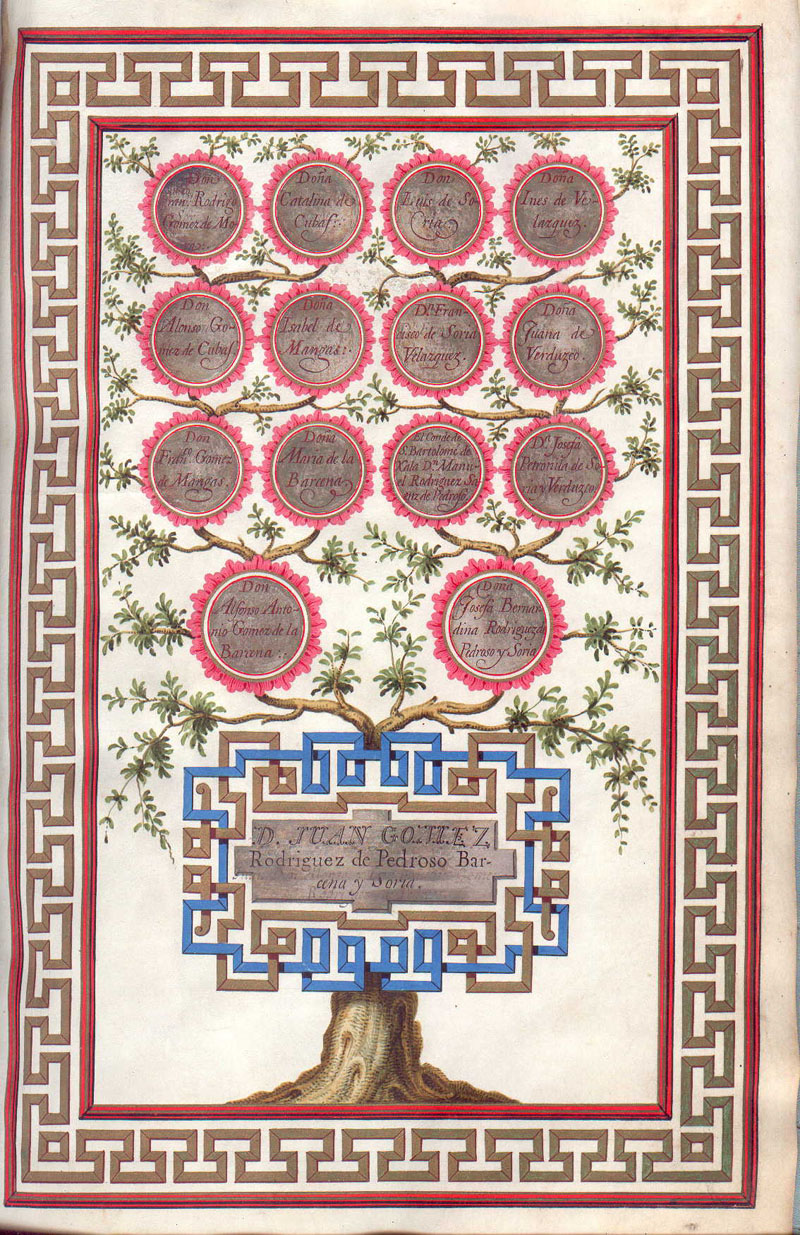 Don
Rodrigo
Gomez de Mo-
Doña
Catalina de
Cubas:.
Don
Luis de So-
ria
Doña
Ines de Ver-
lazquez.
Don
Alonso Go-
mez de Cubas
Doña
Isabel de
Mangas:.
Dn. Fran-
cisco de Soria
Velazquez.
Doña
Juana de
Verduzco.
Don
Gomez
de Mangas.
Doña
Maria de la
Barcena
El Conde de
S. Bartolome de
Xala Dn. Manu-
el Rodriguez Sa-
enz de Pedroso.
Da. Josefa
Petronila de So-
ria y Verduzco
Don
Alfonso Anto-
nio Gomez de la
Barcena:.
Doña
Josefa Bernar-
dina Rodriguez de
Pedroso y Soria
D. JUAN GOMEZ
Rodriguez de Pedroso Bar-
cena y Soria.